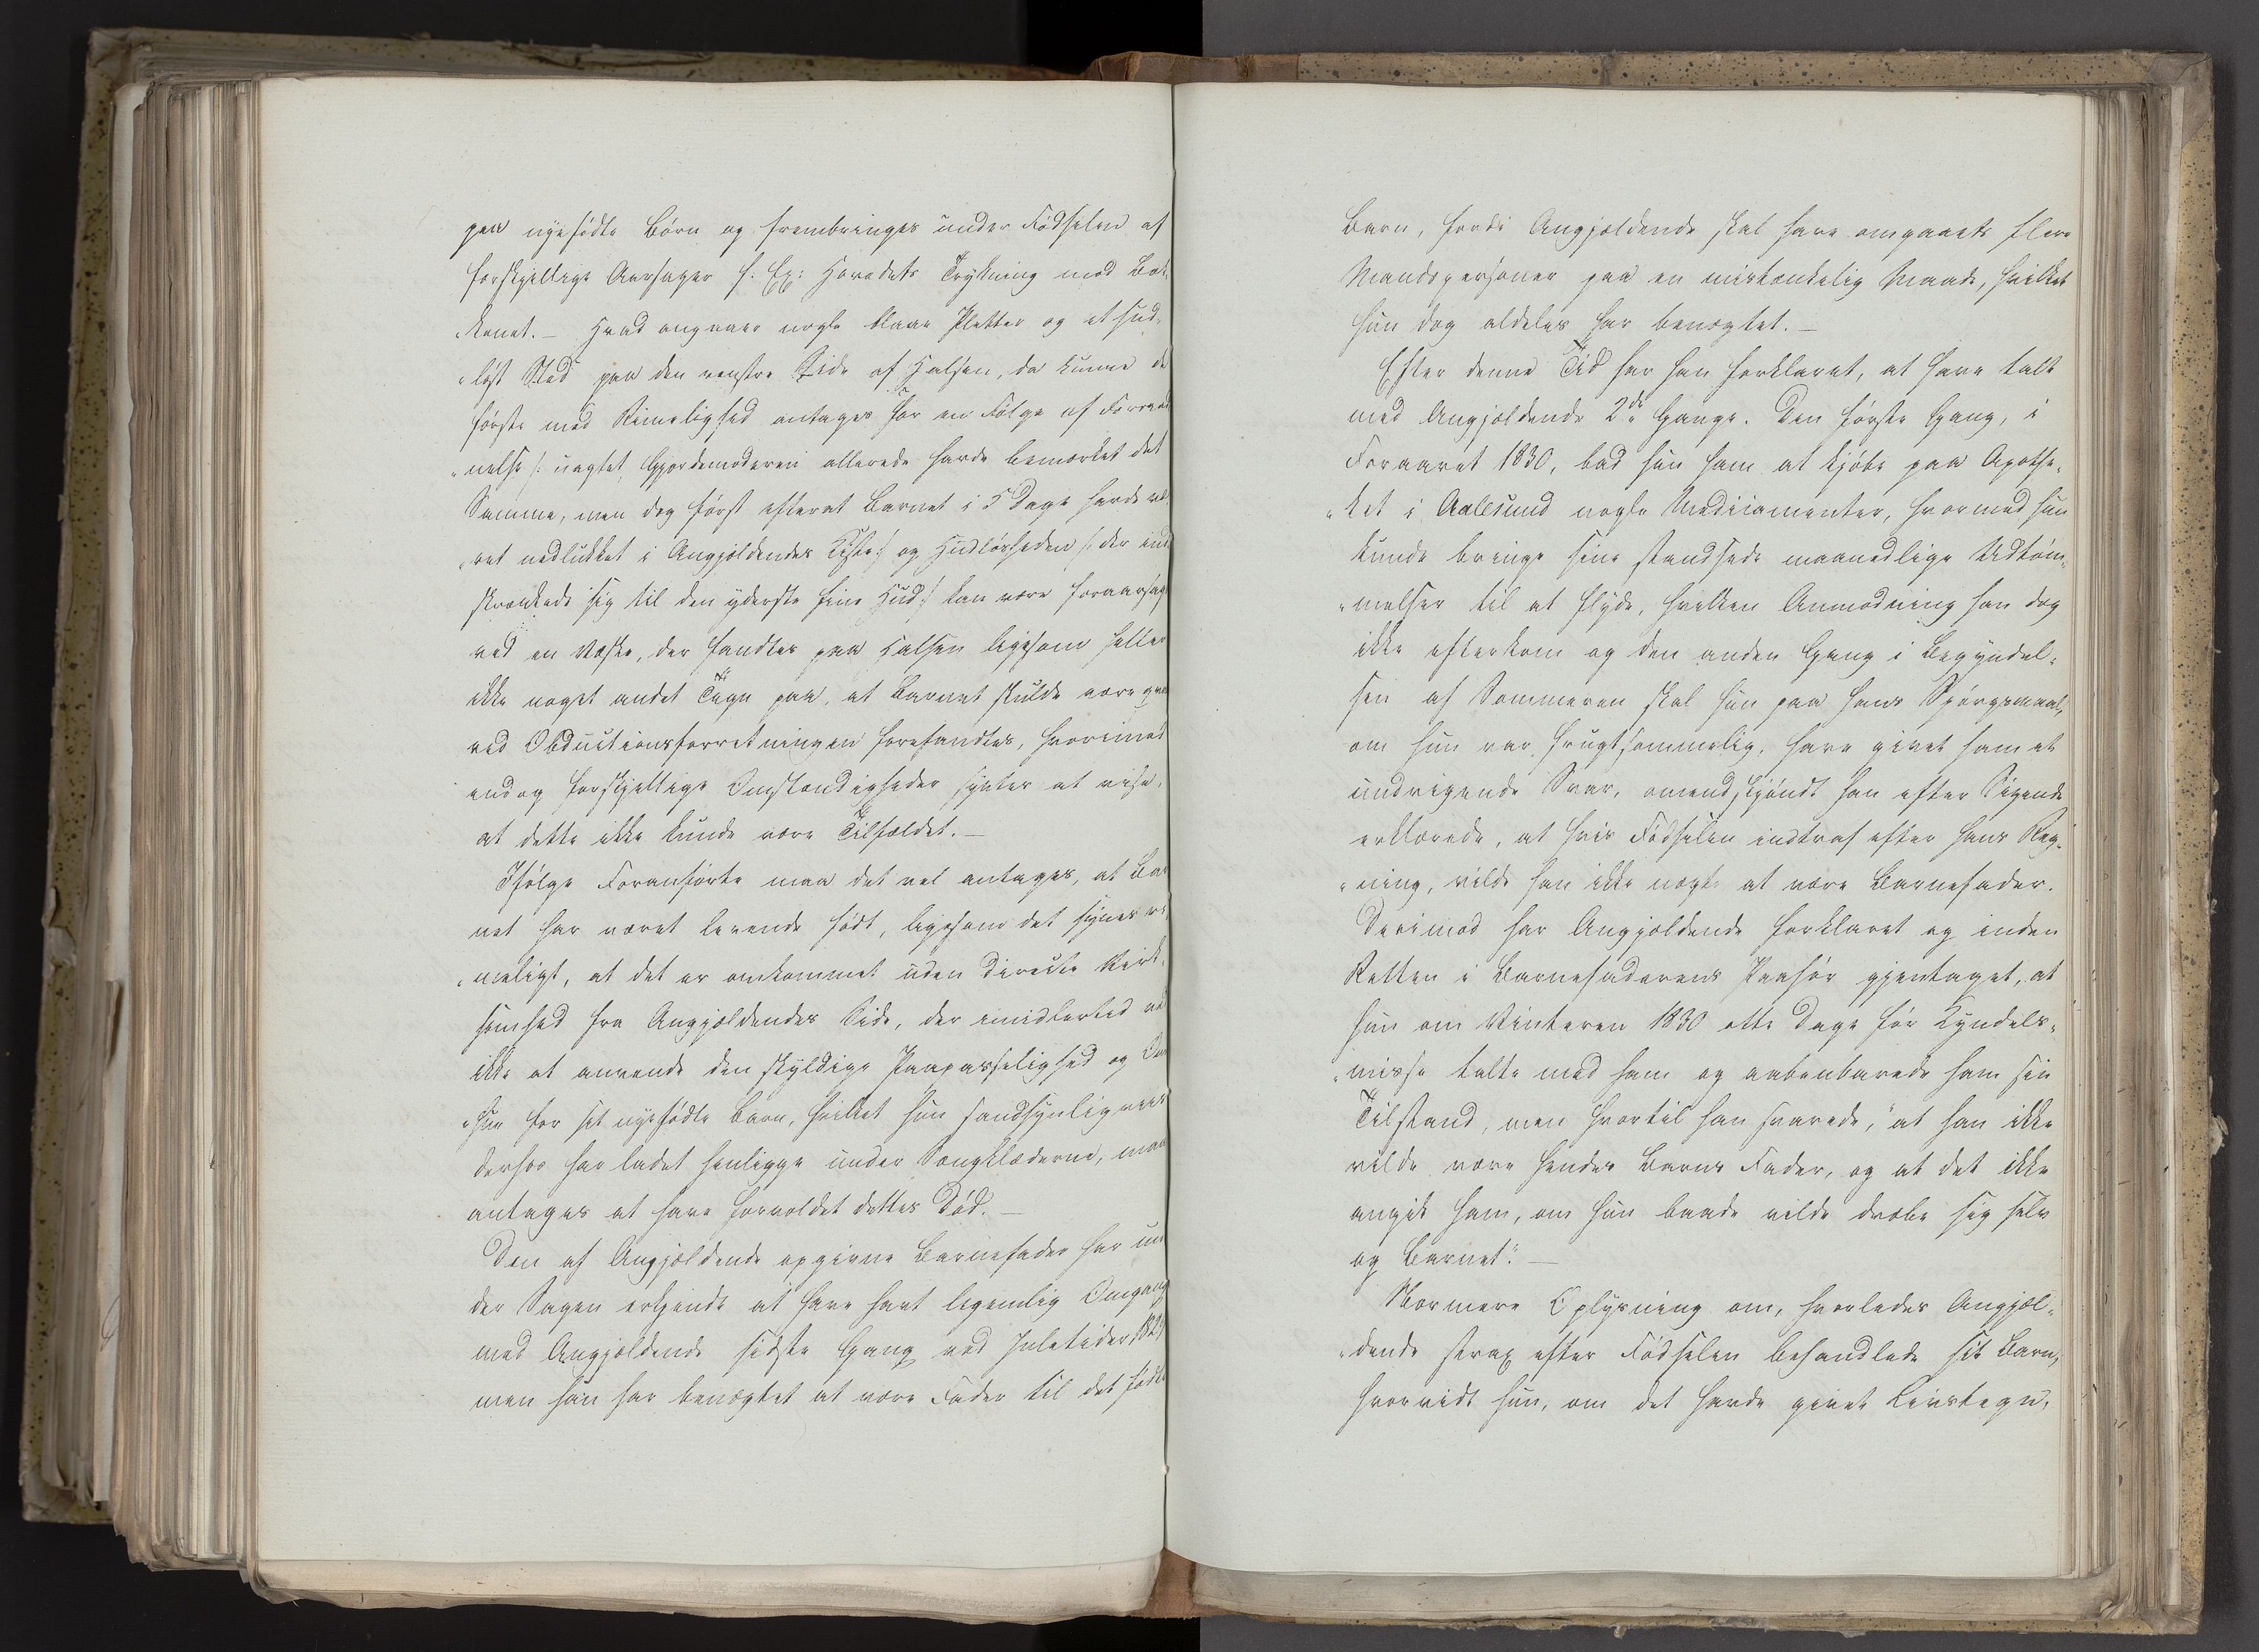 paa nyefödte Börn og frembringes under Födselen af
forskjellige Aarsager f. Ex: Hovedets Trykning mod Bæk
kenet. – Hvad angaaer nogle blaae Pletter og et hud¬
löst Sted paa den venstre Side af Halsen, da kunne de
förste med Rimelighed antages for en Fölge af Forraad
nelse /: uagtet Gjordemoderen allerede havde bemærket det
Samme, men dog först efterat Barnet i 5 Dage havde væ
ret nedlukket i Angjældendes Kiste :/ og Hudlösheden /: der ind
skrænkede sig til den yderste fine Hud :/ kan være foraarsaget
ved en Vædske, der fandtes paa Halsen ligesom heller
ikke noget andet Tegn paa, at Barnet skulde være qva
ved Obductionsforretningen forefandtes, hvorimod
endog forskjellige Omstændigheder synes at vise,
at dette ikke kunde være Tilfældet. –
Ifölge Foranförte maa det vel antages, at Bar
net har været levende födt, ligesom det synes ri
meligt, at det er omkommet uden directe Virk¬
somhed fra Angjældendes Side, der imidlertid ved
ikke at anvende den skyldige Paapasselighed og Om
hue for sit nyefödte Barn, hvilket hun sandsynligviis
derhos har ladet henligge under Sengklæderne, maa
antages at have forvoldet dettes Död. –
Den af Angjældende opgivne Barnefader har un
der Sagen erkjendt at have havt legemlig Omgang
med Angjældende sidste Gang ved Juletider 1829
men han har benægtet at være Fader til det födte
Barn, fordi Angjældende skal have omgaaets flere
Mandspersoner paa en mistænkelig Maade, hvilket
hun dog aldeles har benægtet. –
Efter denne Tid har han forklaret, at have talt
med Angjældende 2de Gange. Den förste Gang, i
Foraaret 1830, bad hun ham at kjöbe paa Apothe¬
ket i Aalesund nogle Medicamenter, hvormed hun
kunde bringe sine standsede maanedlige Udtöm¬
melser til at flyde, hvilken Anmodning han dog
ikke efterkom og den anden Gang i Begyndel¬
sen af Sommeren skal hun paa hans Spörgsmaal,
om hun var frugtsommelig, have givet ham et
undvigende Svar, omendskjöndt han efter Sigende
erklærede, at hvis Födselen indtraf efter hans Reg¬
ning, vilde han ikke nægte at være Barnefader.
Derimod har Angjældende forklaret og inden
Retten i Barnefaderens Paahör gjentaget, at
hun om Vinteren 1830 otte Dage för Kyndels¬
misse talte med ham og aabenbarede ham sin
Tilstand, men hvortil han svarede, "at han ikke
vilde være hendes Barns Fader, og at det ikke
angik ham, om hun baade vilde dræbe sig selv
og Barnet". –
Nærmere Oplysning om, hvorledes Angjæl¬
dende strax efter Födselen behandlede sit Barn,
hvorvidt hun, om det havde givet Livstegn,